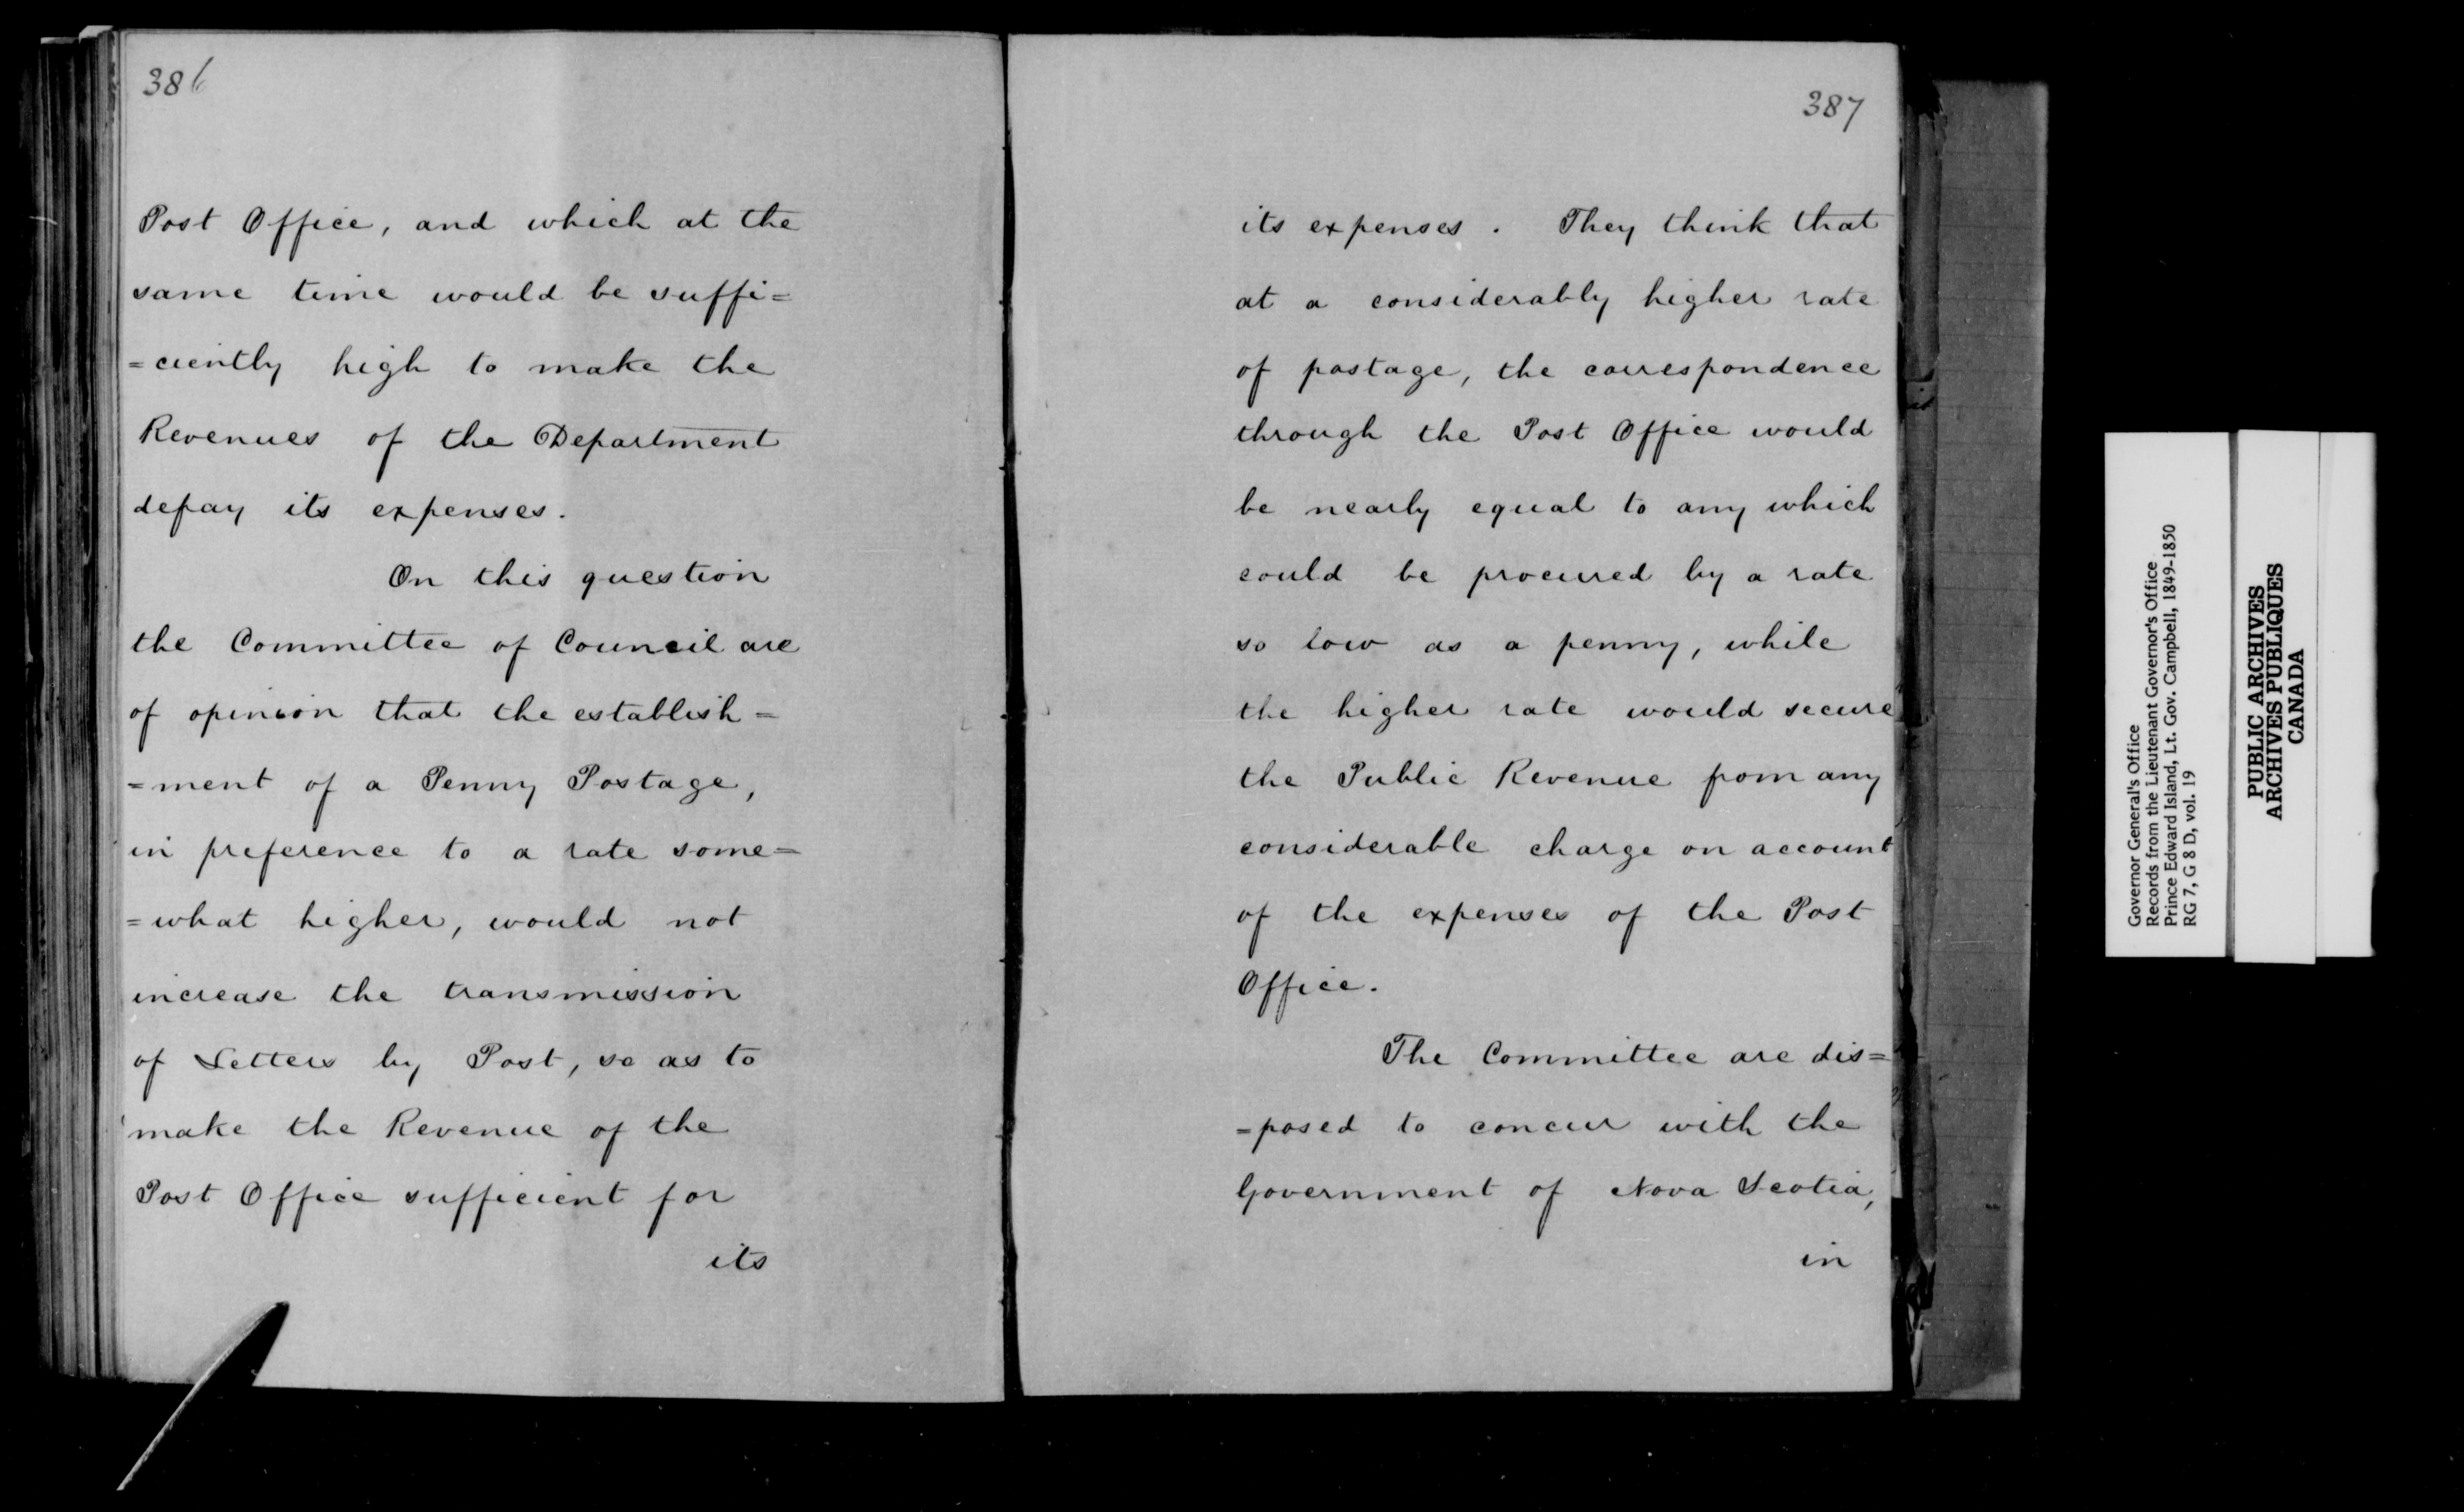 386
Post Office, and which at the
same time would be suffi=
=ciently high to make the
Revenues of the Department
defray its expenses.
On this question
the Committee of Council are
of opinion that the establish=
=ment of a Penny Postage,
in preference to a rate some=
=what higher, would not
increase the transmission
of Letters by Post, so as to
make the Revenue of the
Post Office sufficient for
its
387
its expenses. They think that
at a considerably higher rate
of postage, the correspondence
through the Post Office would
be nearly equal to any which
could be procured by a rate
so low as a penny, while
the higher rate would secure
the Public Revenue from any
considerable charge on account
of the expenses of the Post
Office.
The Committee are dis=
=posed to concur with the
Government of Nova Scotia,
in
Governor General's Office
Records from the Lieutenant Governor's Office
Prince Edward Island, Lt. Gov. Campbell, 1849-1850
RG 7, G 8 D, vol. 19
PUBLIC ARCHIVES
ARCHIVES PUBLIQUES
CANADA